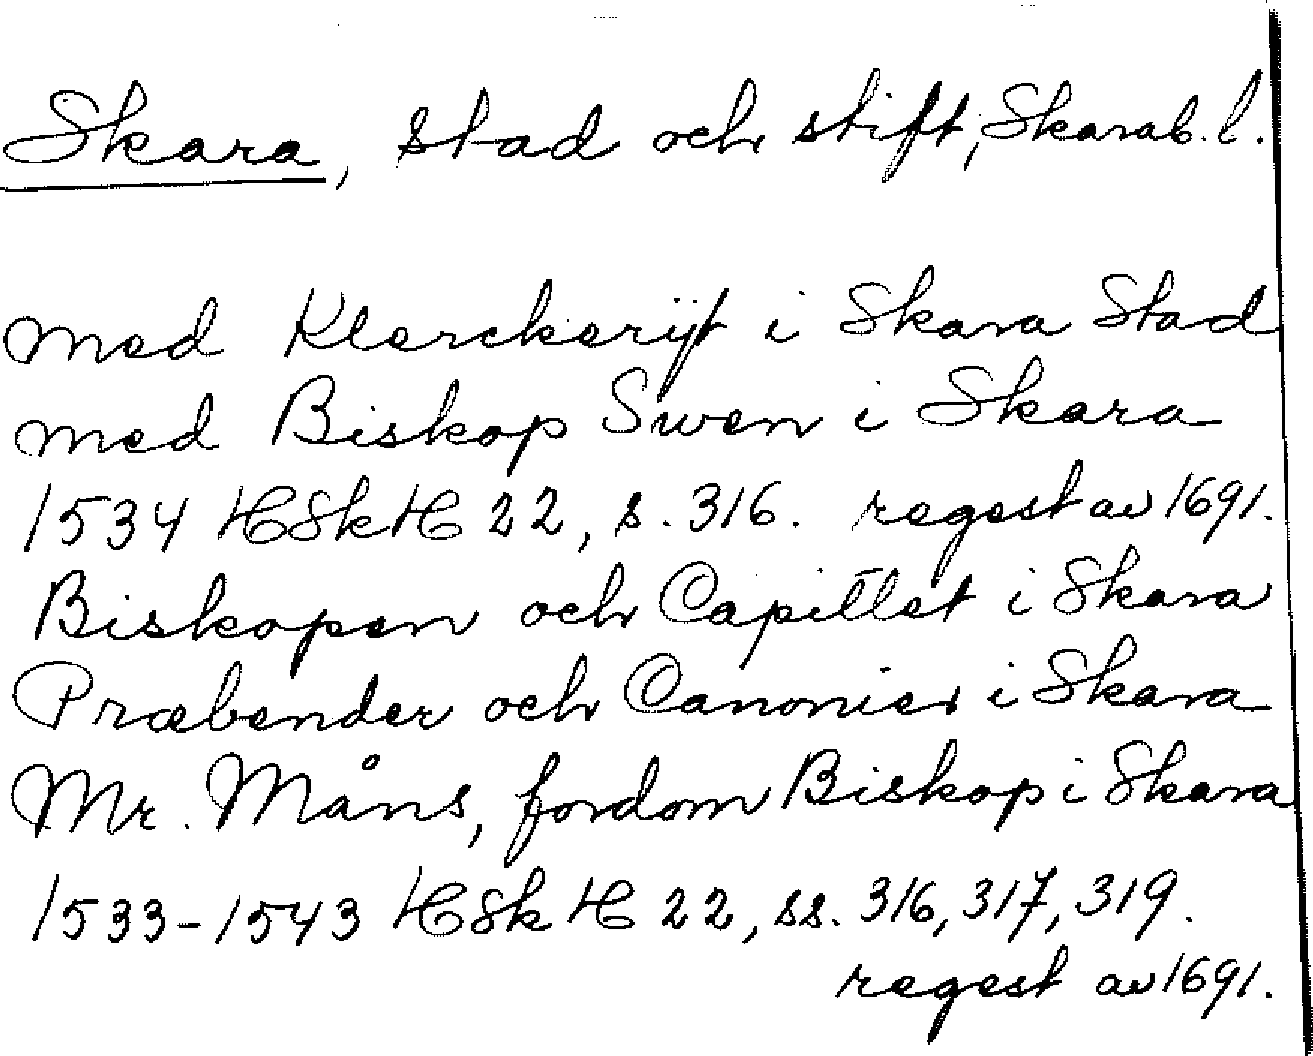 Skara, stad och stift, Skarab. l.
med Klerckerijt i Skara Stad
med Biskop Swen i Skara
1534 HSkH 22, s. 316. regest av 1691.
Biskopen och Capitlet i Skara
Præbender och Canonier i Skara
Mr. Måns, fordom Biskop i Skara
1533-1543 HSkH 22, ss. 316, 317, 319.
regest av 1691.